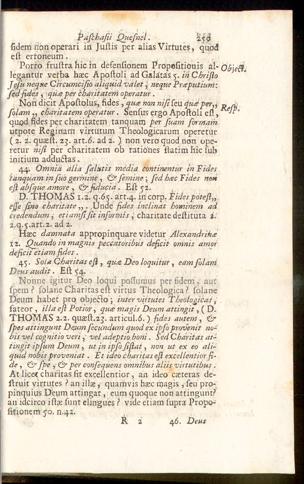 Paschasii Quesnel. 259
fidem non operari in Justis per alias Virtutes, quod
est erroneum.
Porro frustra hic in defensionem Propositionis al-
legantur verba hæc Apostoli ad Galatas 5. in Christo
Jesu neque Circumcisio aliquid valet, neque Præputium:
sed fides, quæ per charitatem operatur.
Object.
Non dicit Apostolus, fides, quæ non nisi seu quæ per,,
solam,, charitatem operatur. Sensus ergo Apostoli est,
Resp.
quod fides per charitatem tanquam per suam formam
utpote Reginam virtutum Theologicarum operetur
(2. 2. quæst. 23. art. 6. ad 2.) non vero quod non ope-
retur nisi per charitatem ob rationes statim hic sub
initium adductas.
44. Omnia alia salutis media continentur in Fide
tanquam in suo germine, & semine; sed hæc Fides non
est absque amore, & fiducia. Est 52.
D. THOMAS 1. 2. q. 65. art. 4. in corp. Fides potest,,
esse sine charitate,,. Unde fides inclinat hominem ad
credendum, etiamsi sit informis, charitate destituta 2.
2. q. 5. art. 2. ad 2.
Hæc damnata appropinquare videtur Alexandrinæ
12. Quando in magnis peccatoribus deficit omnis amor
deficit etiam fides.
45. Sola Charitas est, quæ Deo loquitur, eam solam
Deus audit. Est 54.
Nonne igitur Deo loqui possumus per fidem, aut
spem? solane Charitas est virtus Theologica? solane
Deum habet pro objecto; inter virtutes Theologicas,
fateor, illa est Potior, quæ magis Deum attingit, (D.
THOMAS 2. 2. quæst. 23. articul. 6.) fides autem, &
spes attingunt Deum secundum quod ex ipso provenit no-
bis vel cognitio veri, vel adeptio boni. Sed Charitas at-
tingit ipsum Deum, ut in ipso sistat, non ut ex eo ali-
quid nobis proveniat. Et ideo charitas est excellentior fi-
de, & spe, & per consequens omnibus aliis virtutibus.
At licet charitas sit excellentior, an ideo cæteras de-
struit virtutes? an illæ, quamvis hæc magis, seu pro-
pinquius Deum attingat, eum quoque non attingunt?
an idcirco istæ sunt elingues? vide etiam supra Propo-
sitionem 50. n. 42.
R 2 46. Deus